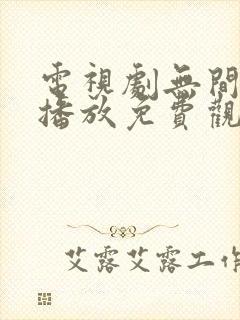 電視劇無間
播放免費觀
艾露艾露工作